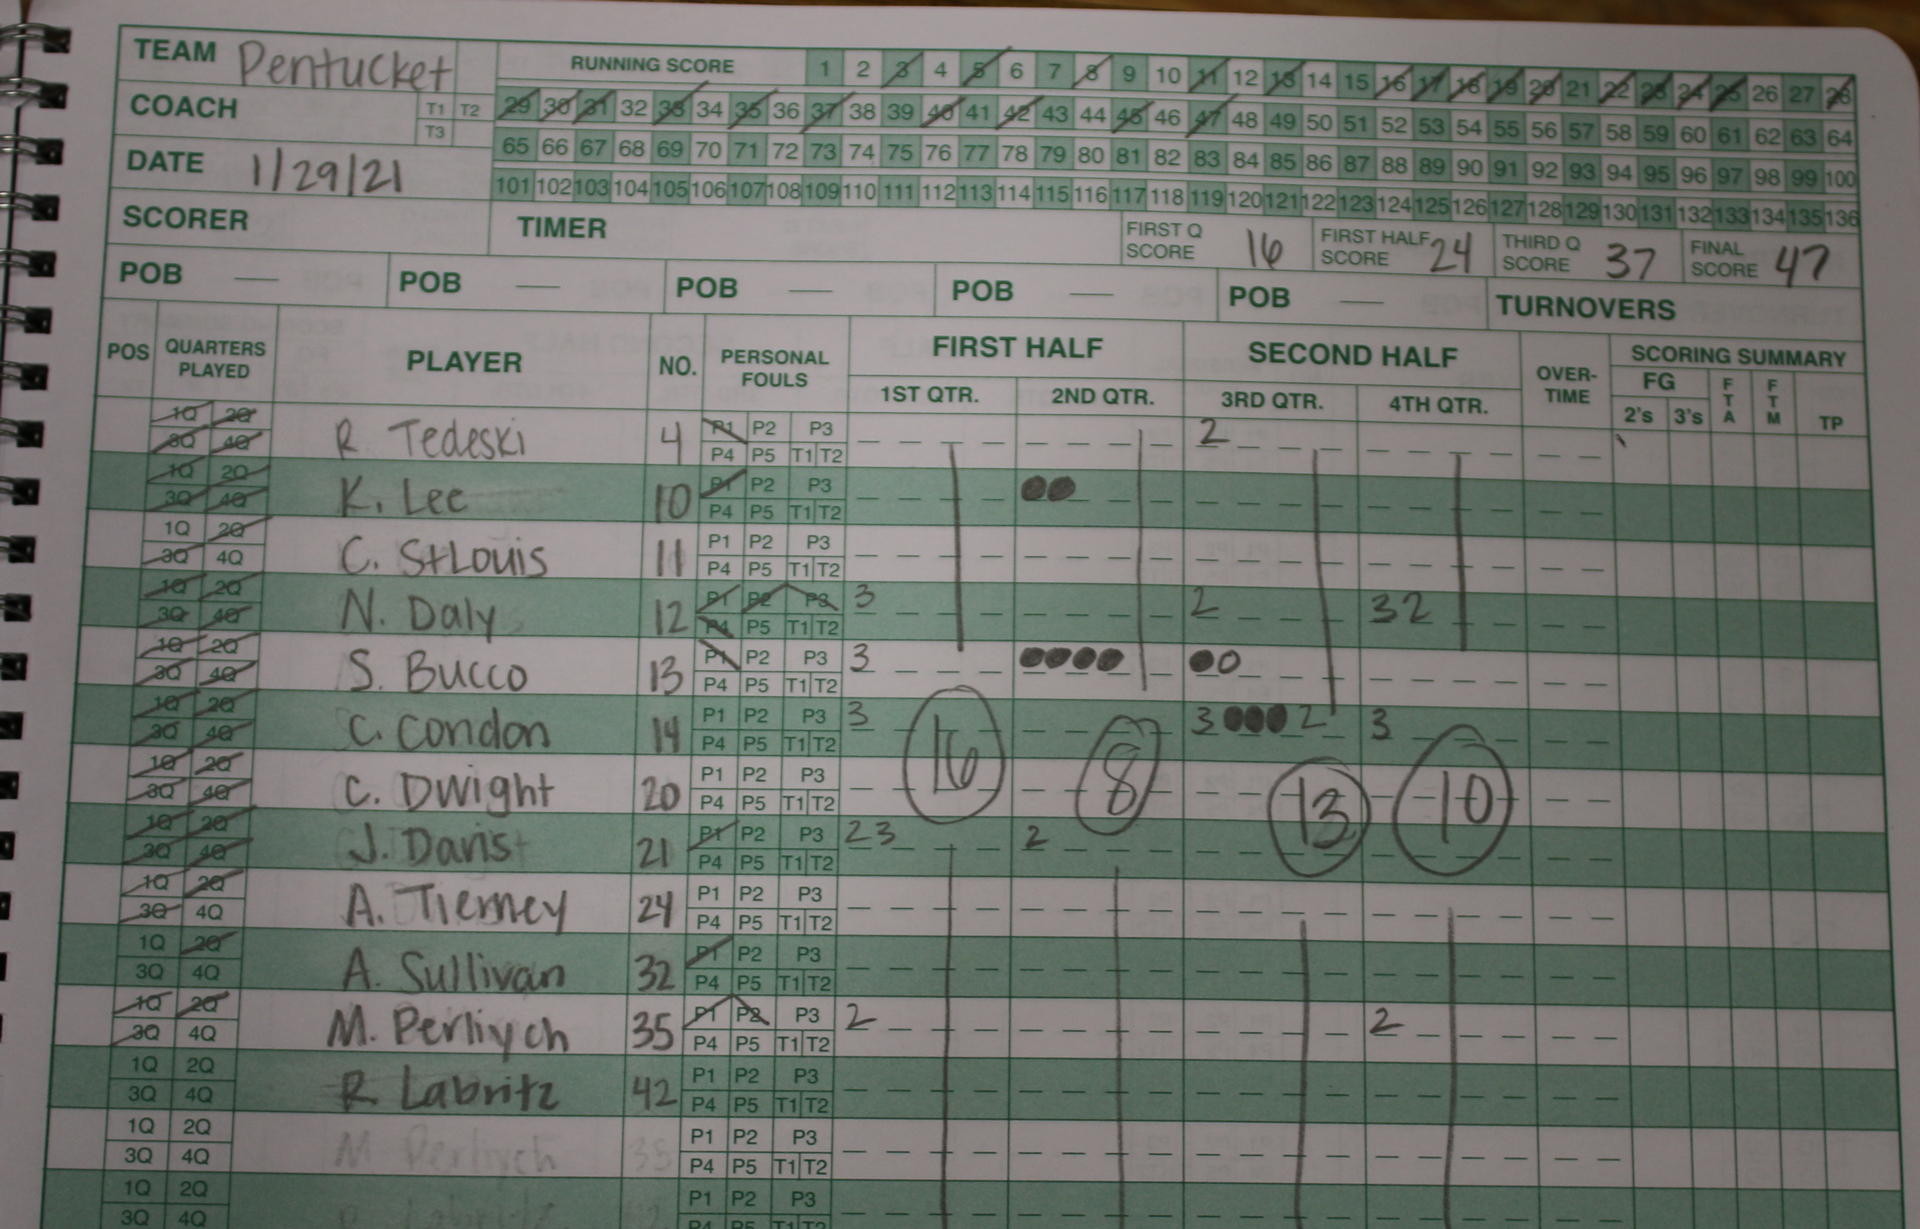 TEAM Pentucket
RUNNING SCORE 1 2 3 4 5 6 7 8 9 10 11 12 13 14 15 16 17 18 19 20 21 22 23 24 25 26 27 28
COACH T1 T2 29 30 31 32 33 34 35 36 37 38 39 40 41 42 43 44 45 46 47 48 49 50 51 52 53 54 55 56 57 58 59 60 61 62 63 64
T3
DATE 1/29/21 65 66 67 68 69 70 71 72 73 74 75 76 77 78 79 80 81 82 83 84 85 86 87 88 89 90 91 92 93 94 95 96 97 98 99 100
101 102 103 104 105 106 107 108 109 110 111 112 113 114 115 116 117 118 119 120 121 122 123 124 125 126 127 128 129 130 131 132 133 134 135 136
SCORER TIMER FIRST Q SCORE 16 FIRST HALF SCORE 24 THIRD Q SCORE 37 FINAL SCORE 47
POB — POB — POB — POB — POB — TURNOVERS
POS QUARTERS PLAYED PLAYER NO. PERSONAL FOULS FIRST HALF SECOND HALF OVER-TIME SCORING SUMMARY
1ST QTR. 2ND QTR. 3RD QTR. 4TH QTR. FG 2's 3's FTA FTM TP
1Q 2Q R. Tedeski 4 P1 P2 P3 2
3Q 4Q P4 P5 T1 T2
1Q 2Q K. Lee 10 P1 P2 P3
3Q 4Q P4 P5 T1 T2
1Q 2Q C. StLouis 11 P1 P2 P3
3Q 4Q P4 P5 T1 T2
1Q 2Q N. Daly 12 P1 P2 P3 3 2 32
3Q 4Q P4 P5 T1 T2
1Q 2Q S. Bucco 13 P1 P2 P3 3
3Q 4Q P4 P5 T1 T2
1Q 2Q C. Condon 14 P1 P2 P3 3 3 2 3
3Q 4Q P4 P5 T1 T2
1Q 2Q C. Dwight 20 P1 P2 P3 16 8 13 10
3Q 4Q P4 P5 T1 T2
1Q 2Q J. Davis 21 P1 P2 P3 23 2
3Q 4Q P4 P5 T1 T2
1Q 2Q A. Tierney 24 P1 P2 P3
3Q 4Q P4 P5 T1 T2
1Q 2Q A. Sullivan 32 P1 P2 P3
3Q 4Q P4 P5 T1 T2
1Q 2Q M. Perliych 35 P1 P2 P3 2 2
3Q 4Q P4 P5 T1 T2
1Q 2Q R. Labritz 42 P1 P2 P3
3Q 4Q P4 P5 T1 T2
1Q 2Q M Perliych 35 P1 P2 P3
3Q 4Q P4 P5 T1 T2
1Q 2Q Labritz P1 P2 P3
3Q 4Q P4 P5 T1 T2